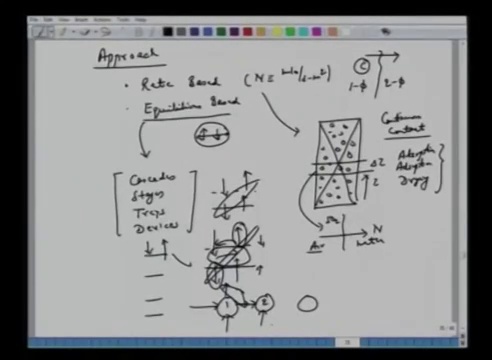 Approach
• Rate Based (N ≡ mole/s-m²)
• Equilibrium Based
Cascades
Stages
Trays
Devices
1
2
C
1-Φ
2-Φ
Continuous
Contact
Absorption
Adsorption
Drying
ΔZ
Z
N